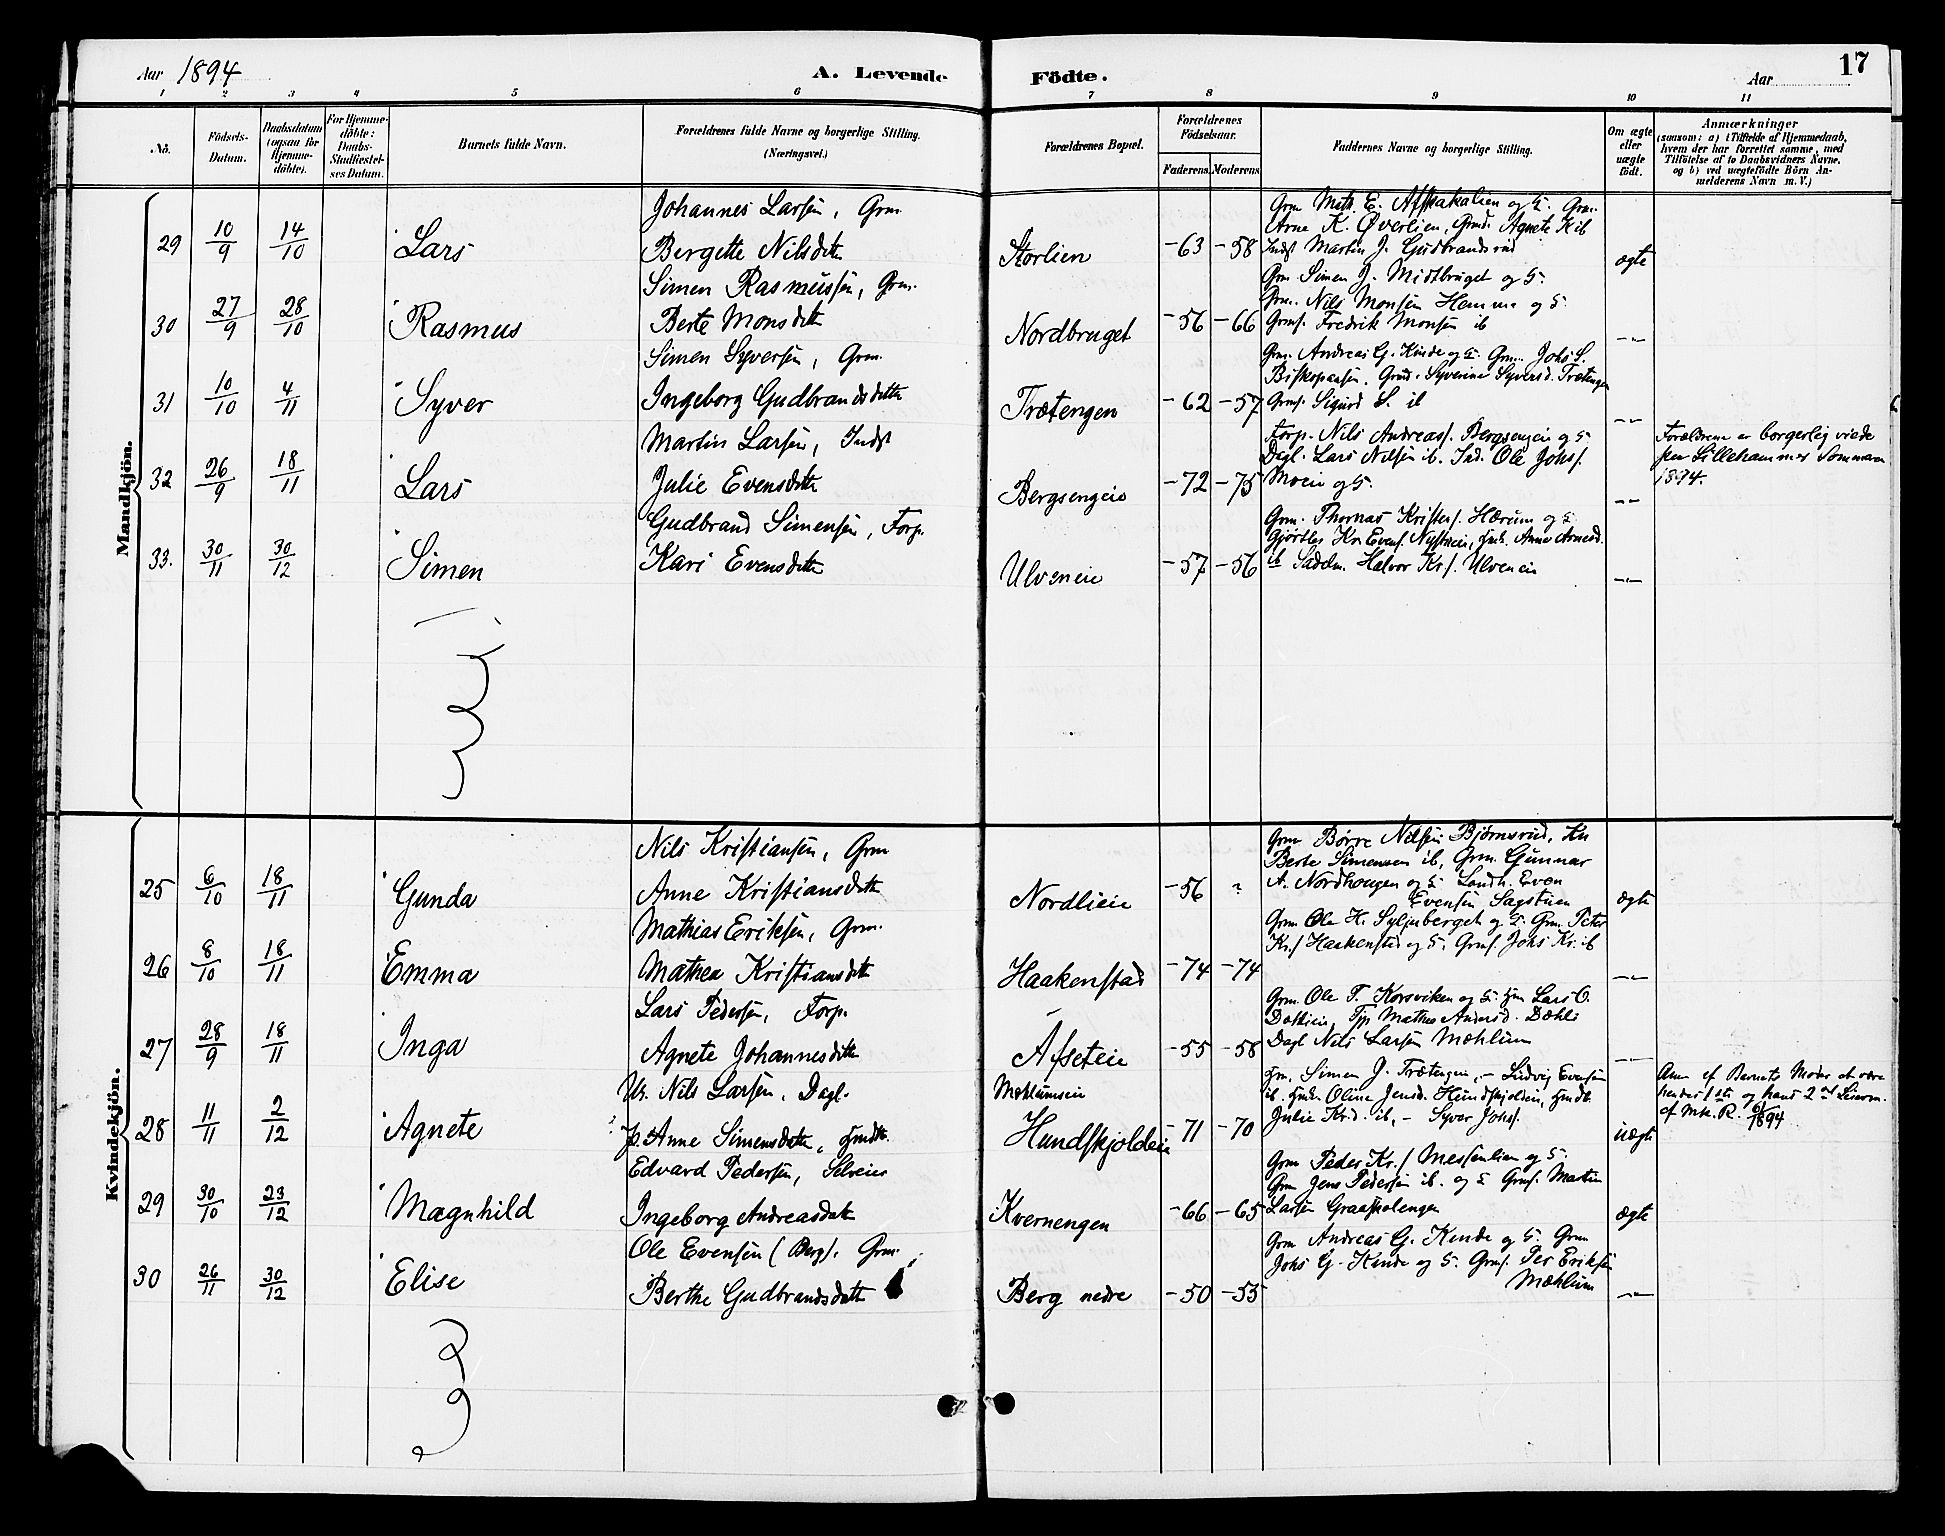 Aar 1894
A. Levende Födte.
Aar
17
1 2 3 4 5 6 7 8 9 10 11
No.
Födsels-Datum.
Daabsdatum (ogsaa for Hjemme-döbte).
For Hjemme-döbte: Daabs-Stadfæstel-ses Datum.
Barnets fulde Navn.
Forældrenes fulde Navne og borgerlige Stilling.
(Næringsvei.)
Forældrenes Bopæl.
Forældrenes Födselsaar.
Faderens. Moderens.
Faddernes Navne og borgerlige Stilling.
Om ægte eller uægte födt.
Anmærkninger
(saasom: a) i Tilfælde af Hjemmedaab,
hvem der har forrettet samme, med
Tilföielse af to Daabsvidners Navne,
og b) ved uægtefödte Börn An-
melderens Navn m. V.)
Mandkjön.
29 10/9 14/10 Lars
Johannes Larsen, Grm.
Bergitte Nilsdttr
Storlien -63 -58
Arne K. Øverlien, Grmd. Agnete K ib
Indst Martin J. Gudbrandsrud
ægte
30 27/9 28/10 Rasmus
Simen Rasmussen, Grm.
Berte Monsdttr
Nordbruget -56 -66
Grm Simen J. Midtbruget og G.
Grm. Nils Monsen Hemma og G.
Grms. Fredrik Monsen ib
-"-
31 10/10 4/11 Syver
Simen Syversen, Grm.
Ingeborg Gudbrandsdatter
Trætengen -62 -57
Grm. Andreas G. Kinde og G. Grm. Johs S.
Grmd. Syverine Syversd. Trætengen
Grms. Sigurd S. ib
-"-
32 26/9 18/11 Lars
Martin Larsen, Indst
Julie Evensdttr
Bergsengeie -72 -75
Forp. Nils Andreass. Bergsengeie og G
Dagl. Lars Nilsen ib. Ind. Ole Johs.
Moeie og G.
-"-
Forældrene er borgerlig viede
paa Lillehammer Sommeren
1894.
33. 30/11 30/12 Simen
Gudbrand Simensen, Forp.
Kari Evensdttr
Ulveneie -57 -56
Grm. Thomas Kristens. Hærum og G
Gjørtler Kr. Evens. Nystueie, Anne Arnesd.
ib Sadelm. Halvor Kr. Ulveneie
-"-
Kvindekjön.
25 6/10 18/11 Gunda
Nils Kristiansen, Grm
Anne Kristiansdttr
Nordlieie -56 ?
Grm Børre Nilsen Bjørnsrud, Kn
Berte Simensen ib, Grm. Gunnar
A. Nordhougen og G Landh. Even
Evensen Sagstuen
ægte
26 8/10 18/11 Emma
Mathias Eriksen, Grm.
Mathea Kristiansdttr
Haakenstad -74 -74
Grm Ole H. Syljuberget og G. Grm. Peter
Kr. Haakenstad og G. Grms. Johs Kr. ib
-"-
27 28/9 18/11 Inga
Lars Pedersen, Forp.
Agnete Johannesdttr
Afseteie -55 -58
Grm. Ole T. Korsviken og G. Lars O.
Dæhlieie, Tjp Mathea Andersd. Dæhli
Dagl Nils Larsen Mæhlum
-"-
28 11/11 2/12 Agnete
U. Nils Larsen, Dagl.
P. Anne Simensdttr
Mæhlumseie
Hundskjoldeie -71 -70
Simen J. Trætengeie, - Ludvig Evensen
ib. Oline Jensd. Hundskjoldeie,
Julie Kr.d. ib, - Syver Johs.
uægte
Anm af Barnets Moder at være
hendes 1ste og hans 2det Leierm.
1894
29 30/10 23/12 Magnhild
Edvard Pedersen, Selveier
Ingeborg Andreasdttr
Kvernengen -66 -65
Grm Peder Kr. Messenlien og G.
Grm Jens Pedersen ib. og G Grms. Martin
Larsen
ægte
30 26/11 30/12 Elise
Ole Evensen (Berg). Grm.
Berthe Gudbrandsdttr
Berg nedre -50 -55
Grm Andreas G. Kinde og G. Grm
Johs G. Kinde og G. Grms. Per Eriksen
Mæhlum
-"-